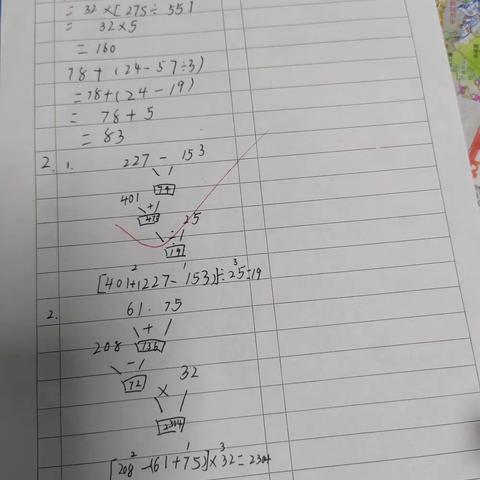 = 32 × [275 ÷ 55]
= 32 × 5
= 160
78 + (24 - 57 ÷ 3)
= 78 + (24 - 19)
= 78 + 5
= 83
2. 1. 227 - 153
401 74
+
475 25
÷
19
2 1 3
[401+(227-153)]÷25=19
2. 61. 75
+
208 136
-
72 32
×
2304
2 1 3
[208-(61+75)]×32=2304